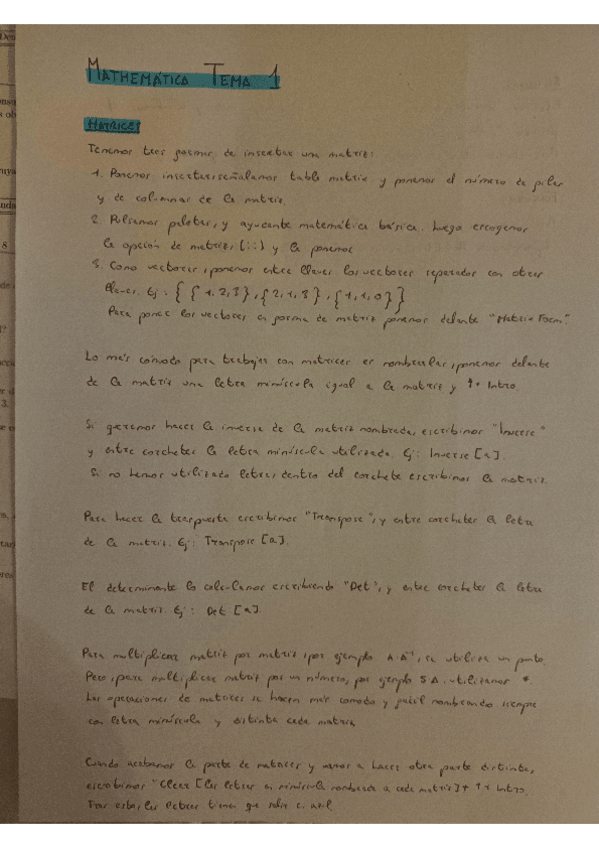 MATHEMÁTICA TEMA 1
MATRICES
Tenemos tres formas de insertar una matriz:
1. Ponemos insertar, señalamos tabla matriz y ponemos el número de filas
y de columnas de la matriz.
2. Pulsamos paletas, y ayudante matemática básica. Luego escogemos
la opción de matriz, (::) y la ponemos
3. Como vectores, ponemos entre llaves los vectores separados con otras
llaves. Ej: { {1,2,3}, {2,1,3}, {1,1,0} }
Para poner los vectores en forma de matriz ponemos delante "Matrix Form".
Lo más cómodo para trabajar con matrices es nombrarlas, ponemos delante
de la matriz una letra minúscula igual a la matriz y ⇑+ Intro
Si queremos hacer la inversa de la matriz nombrada, escribimos "Inverse"
y entre corchetes la letra minúscula utilizada. Ej: Inverse [a].
Si no hemos utilizado letras, dentro del corchete escribimos la matriz.
Para hacer la traspuesta escribimos "Transpose", y entre corchetes la letra
de la matriz. Ej: Transpose [a].
El determinante lo calculamos escribiendo "Det", y entre corchetes la letra
de la matriz. Ej: Det [a].
Para multiplicar matriz por matriz, por ejemplo A·A⁻¹, se utiliza un punto.
Pero, para multiplicar matriz por un número, por ejemplo 5A, utilizamos *
Las operaciones de matrices se hacen más cómodo y fácil nombrando siempre
con letra minúscula y distinta cada matriz
Cuando acabamos la parte de matrices y vamos a hacer otra parte distinta,
escribimos "Clear [las letras en minúscula nombrada a cada matriz] + ⇑+ Intro.
Tras esto, las letras tienen que salir en azul